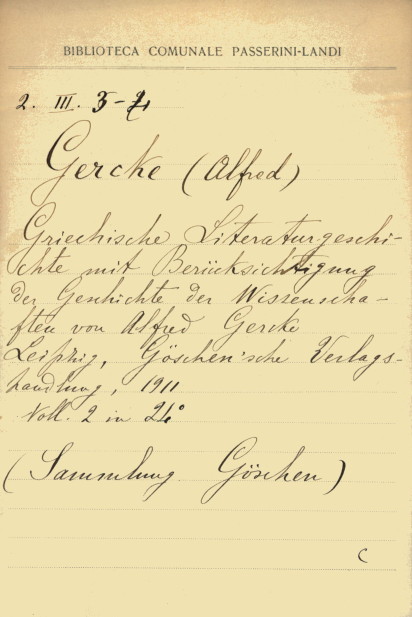 BIBLIOTECA COMUNALE PASSERINI-LANDI
2. III. 3-4
Gercke (Alfred)
Griechische Literaturgeschi-
chte mit Berücksichtigung
der Geschichte der Wissenscha-
ften von Alfred Gercke
Leipzig, Göschen'sche Verlags-
handlung, 1911
Voll. 2 in 24°
(Sammlung Göschen)
C